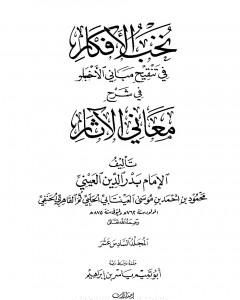 نخب الأفكار
في تنقيح مباني الأخبار
في شرح
معاني الآثار
تأليف
الإمام بدر الدين العيني
محمود بن أحمد بن موسى العينتابي الحلبي ثم القاهري الحنفي
المولود سنة ٧٦٢هـ والمتوفى سنة ٨٥٥هـ
رحمه الله تعالى
المجلد السادس عشر
أبو تميم ياسر بن إبراهيم